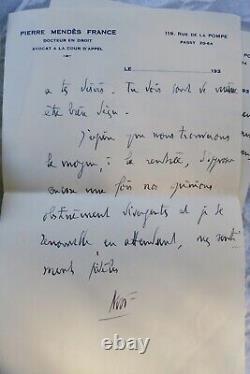 PIERRE MENDÈS FRANCE
DOCTEUR EN DROIT
AVOCAT A LA COUR D'APPEL
119, RUE DE LA POMPE
PASSY 20-64
LE 193
a tes désirs. Tu dois tout de même
être bien déçu.
J'espère que nous trouverons
le moyen, à la rentrée, d'
encore une fois nos opinions
obstinément divergentes et je te
renouvelle en attendant, mes senti
ments